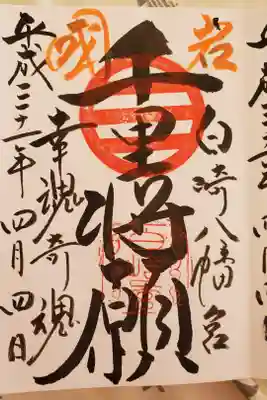 岩國
白崎八幡宮
千里将願
幸魂奇魂
平成三十一年四月四日